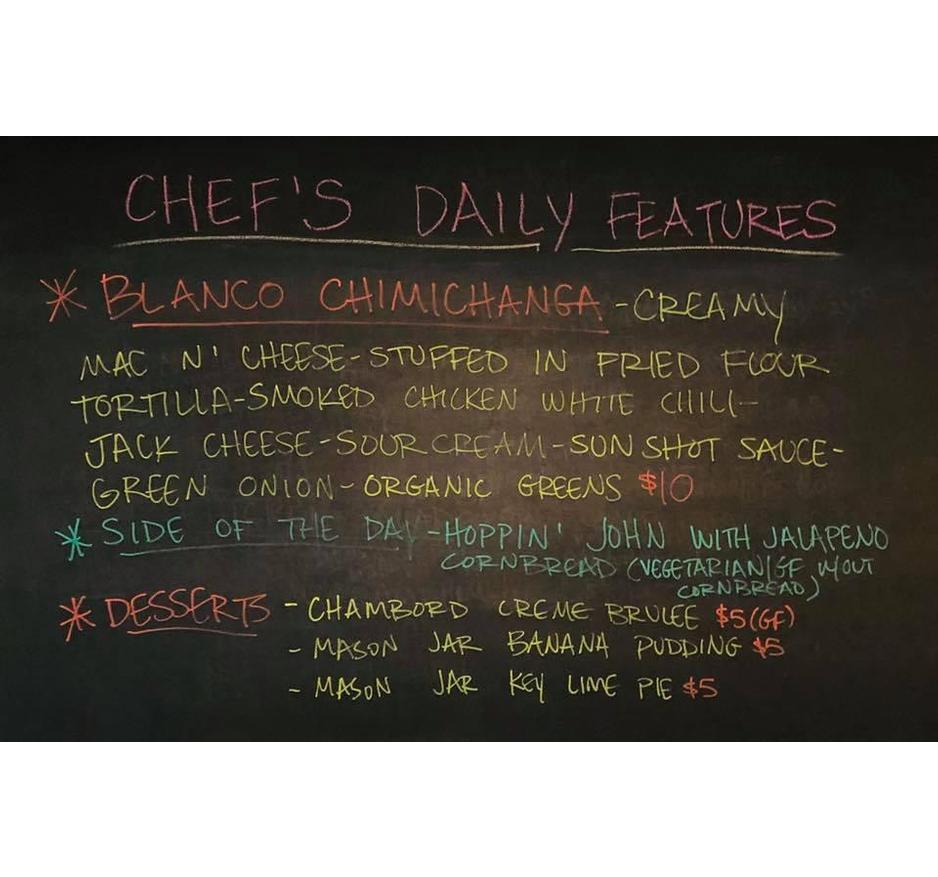 CHEF'S DAILY FEATURES
* BLANCO CHIMICHANGA - CREAMY
MAC N' CHEESE - STUFFED IN FRIED FLOUR
TORTILLA - SMOKED CHICKEN WHITE CHILI -
JACK CHEESE - SOUR CREAM - SUN SHOT SAUCE -
GREEN ONION - ORGANIC GREENS $10
* SIDE OF THE DAY - HOPPIN' JOHN WITH JALAPENO
CORNBREAD (VEGETARIAN/GF W/OUT
CORNBREAD)
* DESSERTS - CHAMBORD CREME BRULEE $5 (GF)
- MASON JAR BANANA PUDDING $5
- MASON JAR KEY LIME PIE $5